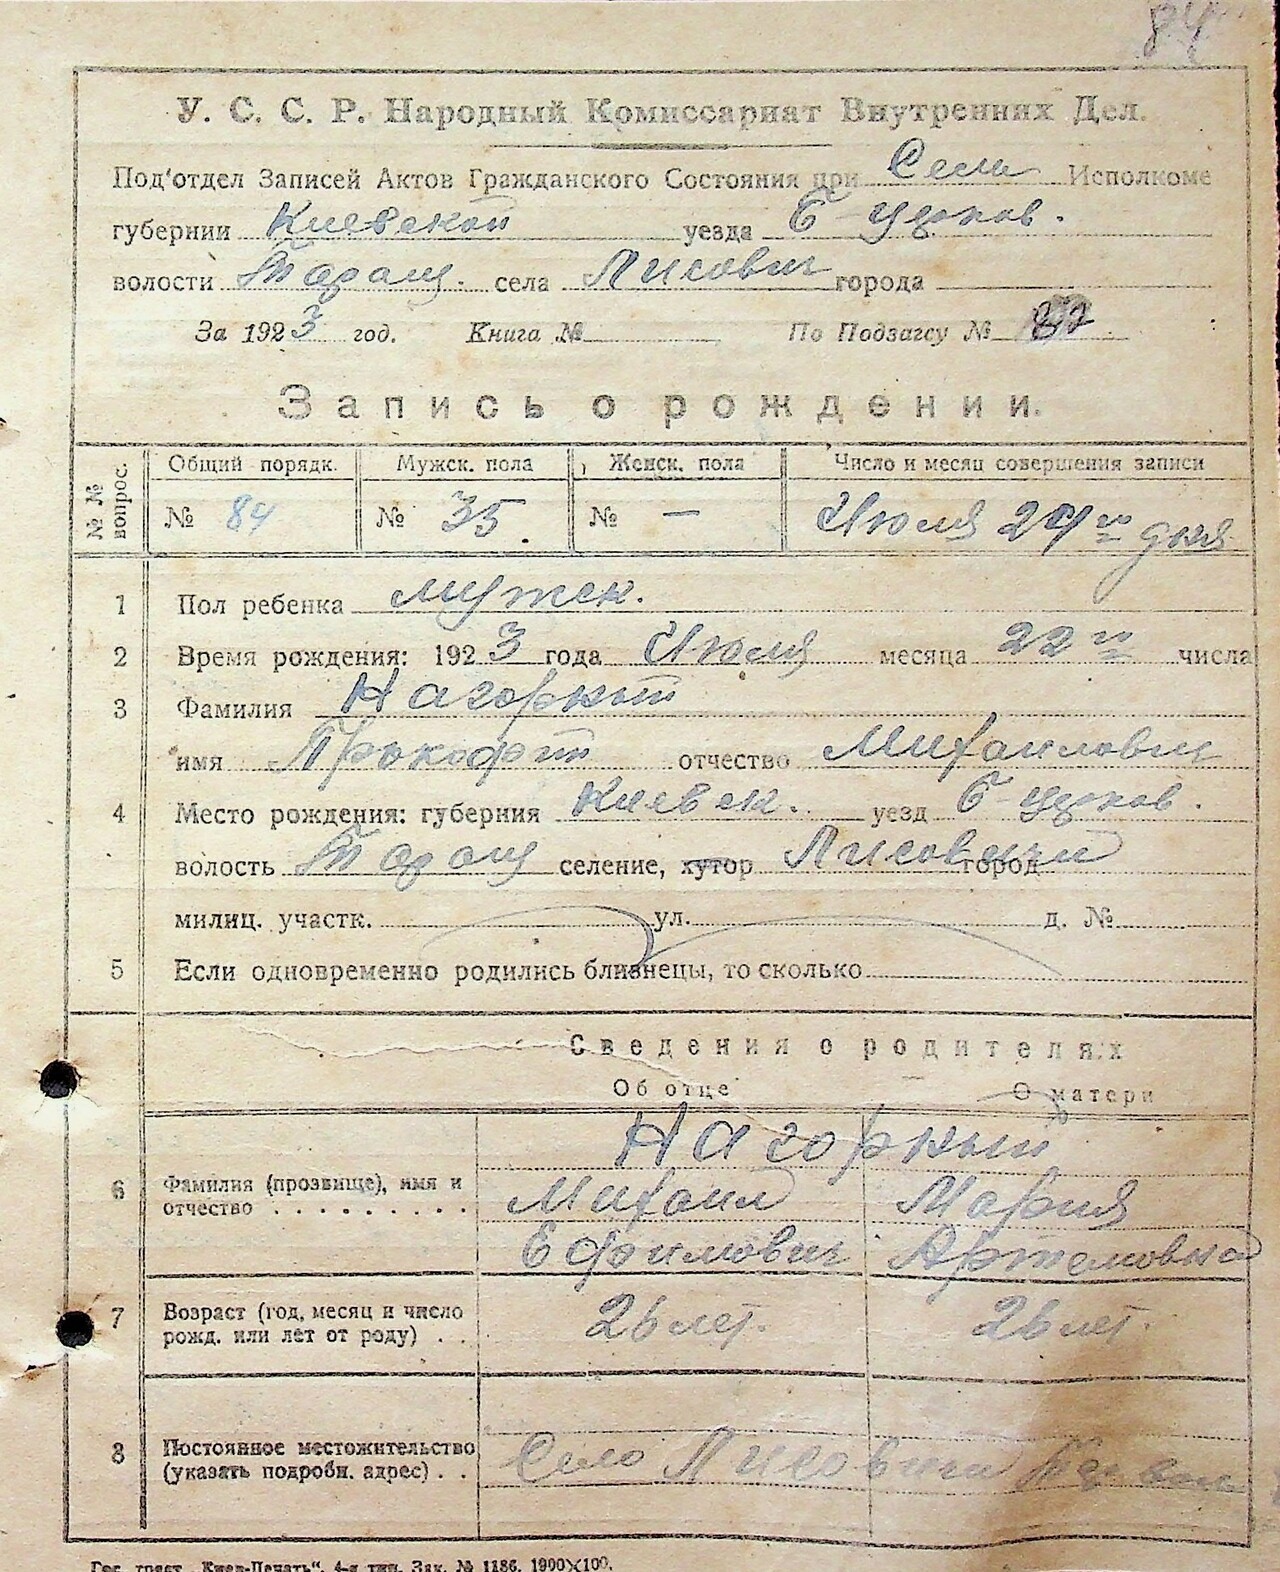 84
У. С. С. Р. Народный Комиссариат Внутренних Дел.
Под'отдел Записей Актов Гражданского Состояния при Сель Исполкоме
губернии Киевской уезда Б-Церков.
волости Таращ. села Лисович города
За 1923 год. Книга № По Подзагсу № 82
Запись о рождении.
№ № вопрос. Общий порядк. Мужск. пола Женск. пола Число и месяц совершения записи
№ 84 № 35. № — Июля 24го дня
1 Пол ребенка мужск.
2 Время рождения: 1923 года Июля месяца 22го числа
3 Фамилия Нагорный
имя Прокофий отчество Михаилович
4 Место рождения: губерния Киевск. уезд Б-Церков.
волость Таращ селение, хутор Лисовичи город
милиц. участк. ул. д. №
5 Если одновременно родились близнецы, то сколько
Сведения о родителях
Об отце О матери
Нагорный
6 Фамилия (прозвище), имя и Михаил Мария
отчество . . . . . . . . . . Ефимович Артемовна
7 Возраст (год, месяц и число 26 лет. 26 лет.
рожд. или лет от роду) . .
8 Постоянное местожительство Село Лисовичи
(указать подробн. адрес) . .
Гос. трест „Киев-Печать“, 4-я тип. Зак. № 1186. 1900×100.